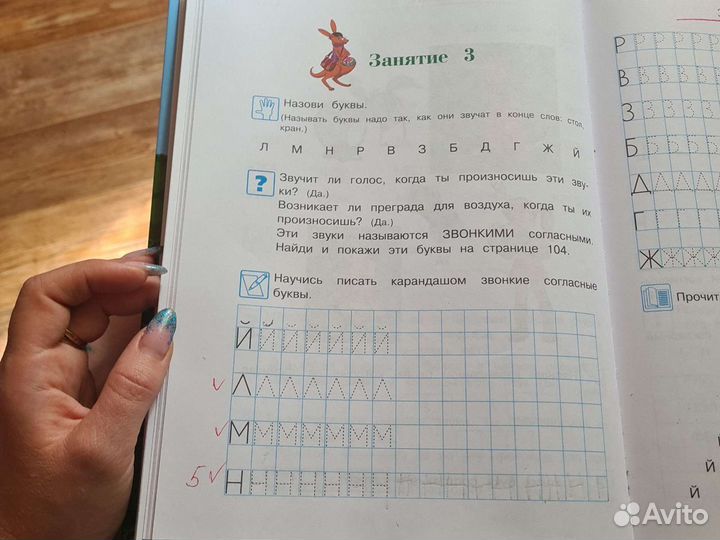 Занятие 3
Назови буквы.
(Называть буквы надо так, как они звучат в конце слов: стол,
кран.)
Л М Н Р В З Б Д Г Ж Й
Звучит ли голос, когда ты произносишь эти зву-
ки? (Да.)
Возникает ли преграда для воздуха, когда ты их
произносишь? (Да.)
Эти звуки называются ЗВОНКИМИ согласными.
Найди и покажи эти буквы на странице 104.
Научись писать карандашом звонкие согласные
буквы.
Й Й Й Й Й Й Й
Л Л Л Л Л Л Л
М М М М М М М
5 Н Н Н Н Н Н Н
Р Р Р Р Р
В В В В В
З З З З З
Б Б Б Б Б
Д Д Д Д Д
Г Г Г Г Г
Ж Ж Ж Ж Ж
Прочит
й
й
Avito